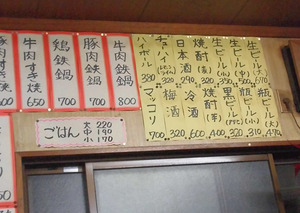 生ビール(大) 670
生ビール(中)
生ビール(小) 320
焼酎(麦) 320
日本酒 290
チューハイ(レモン) 350
ハイボール 320
瓶ビール(大) 470
瓶ビール(小) 310
黒ビール 320
焼酎(芋) 400
冷酒 600
梅酒 320
マッコリ 700
牛肉鉄鍋 800
豚肉鉄鍋 700
鶏鉄鍋 700
牛肉すき焼 650
肉すき焼 600
ごはん 大 220
中 190
小 170